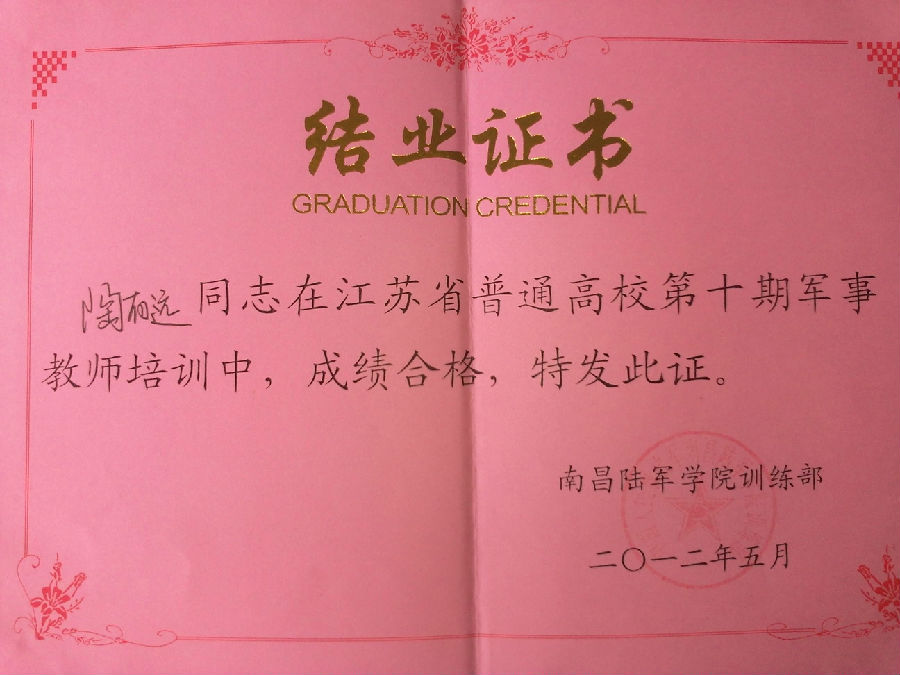 结业证书
GRADUATION CREDENTIAL
陶 远 同志在江苏省普通高校第十期军事
教师培训中，成绩合格，特发此证。
南昌陆军学院训练部
二〇一二年五月